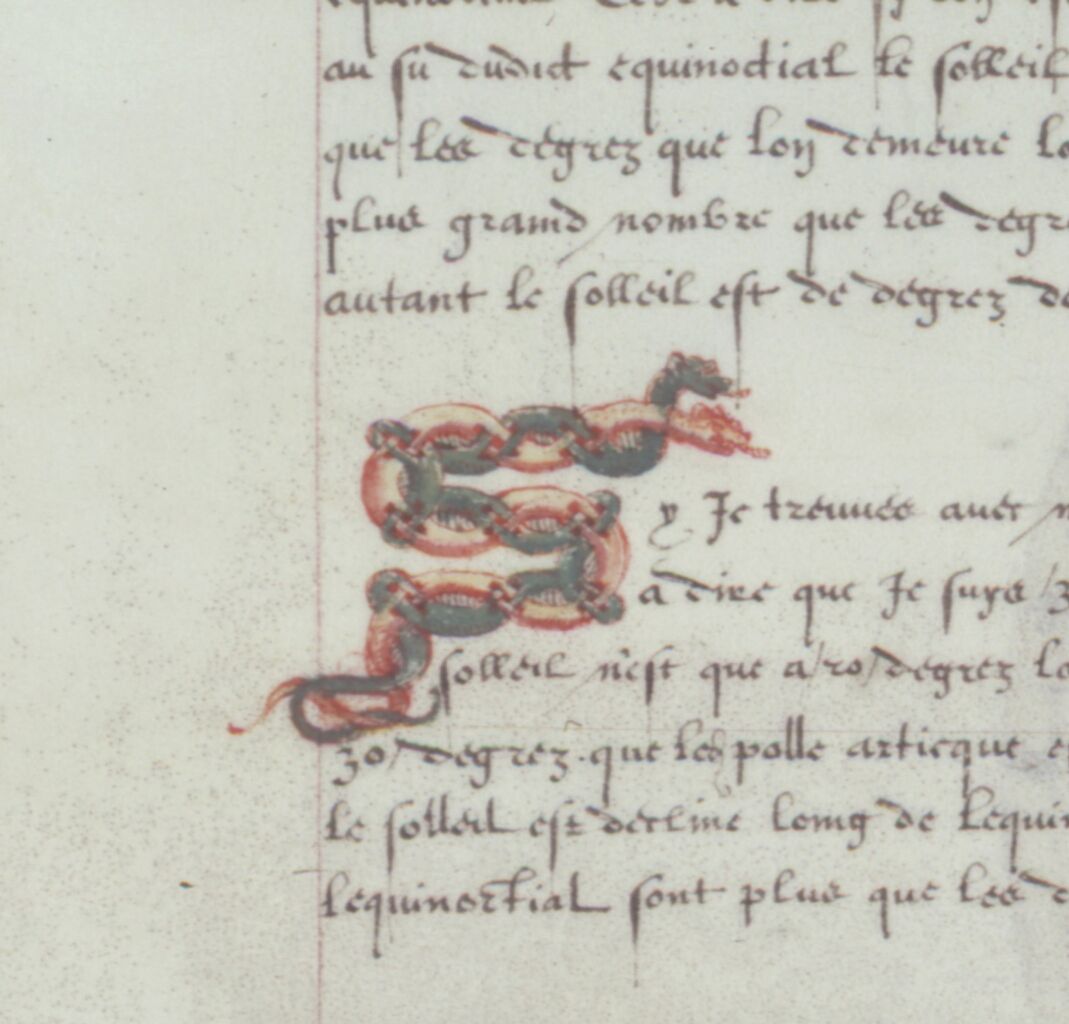 au su dudict equinoctial le solleil
que les degrez que lon demeure
plus grand nombre que les degr
autant le solleil est de degrez de
Sy Je treuues avec
a dire que Je suys 3
solleil n'est que a/20/degrez
30/ degrez. que les polle articque e
le solleil est decline loing de lequi
lequinoctial sont plus que les d